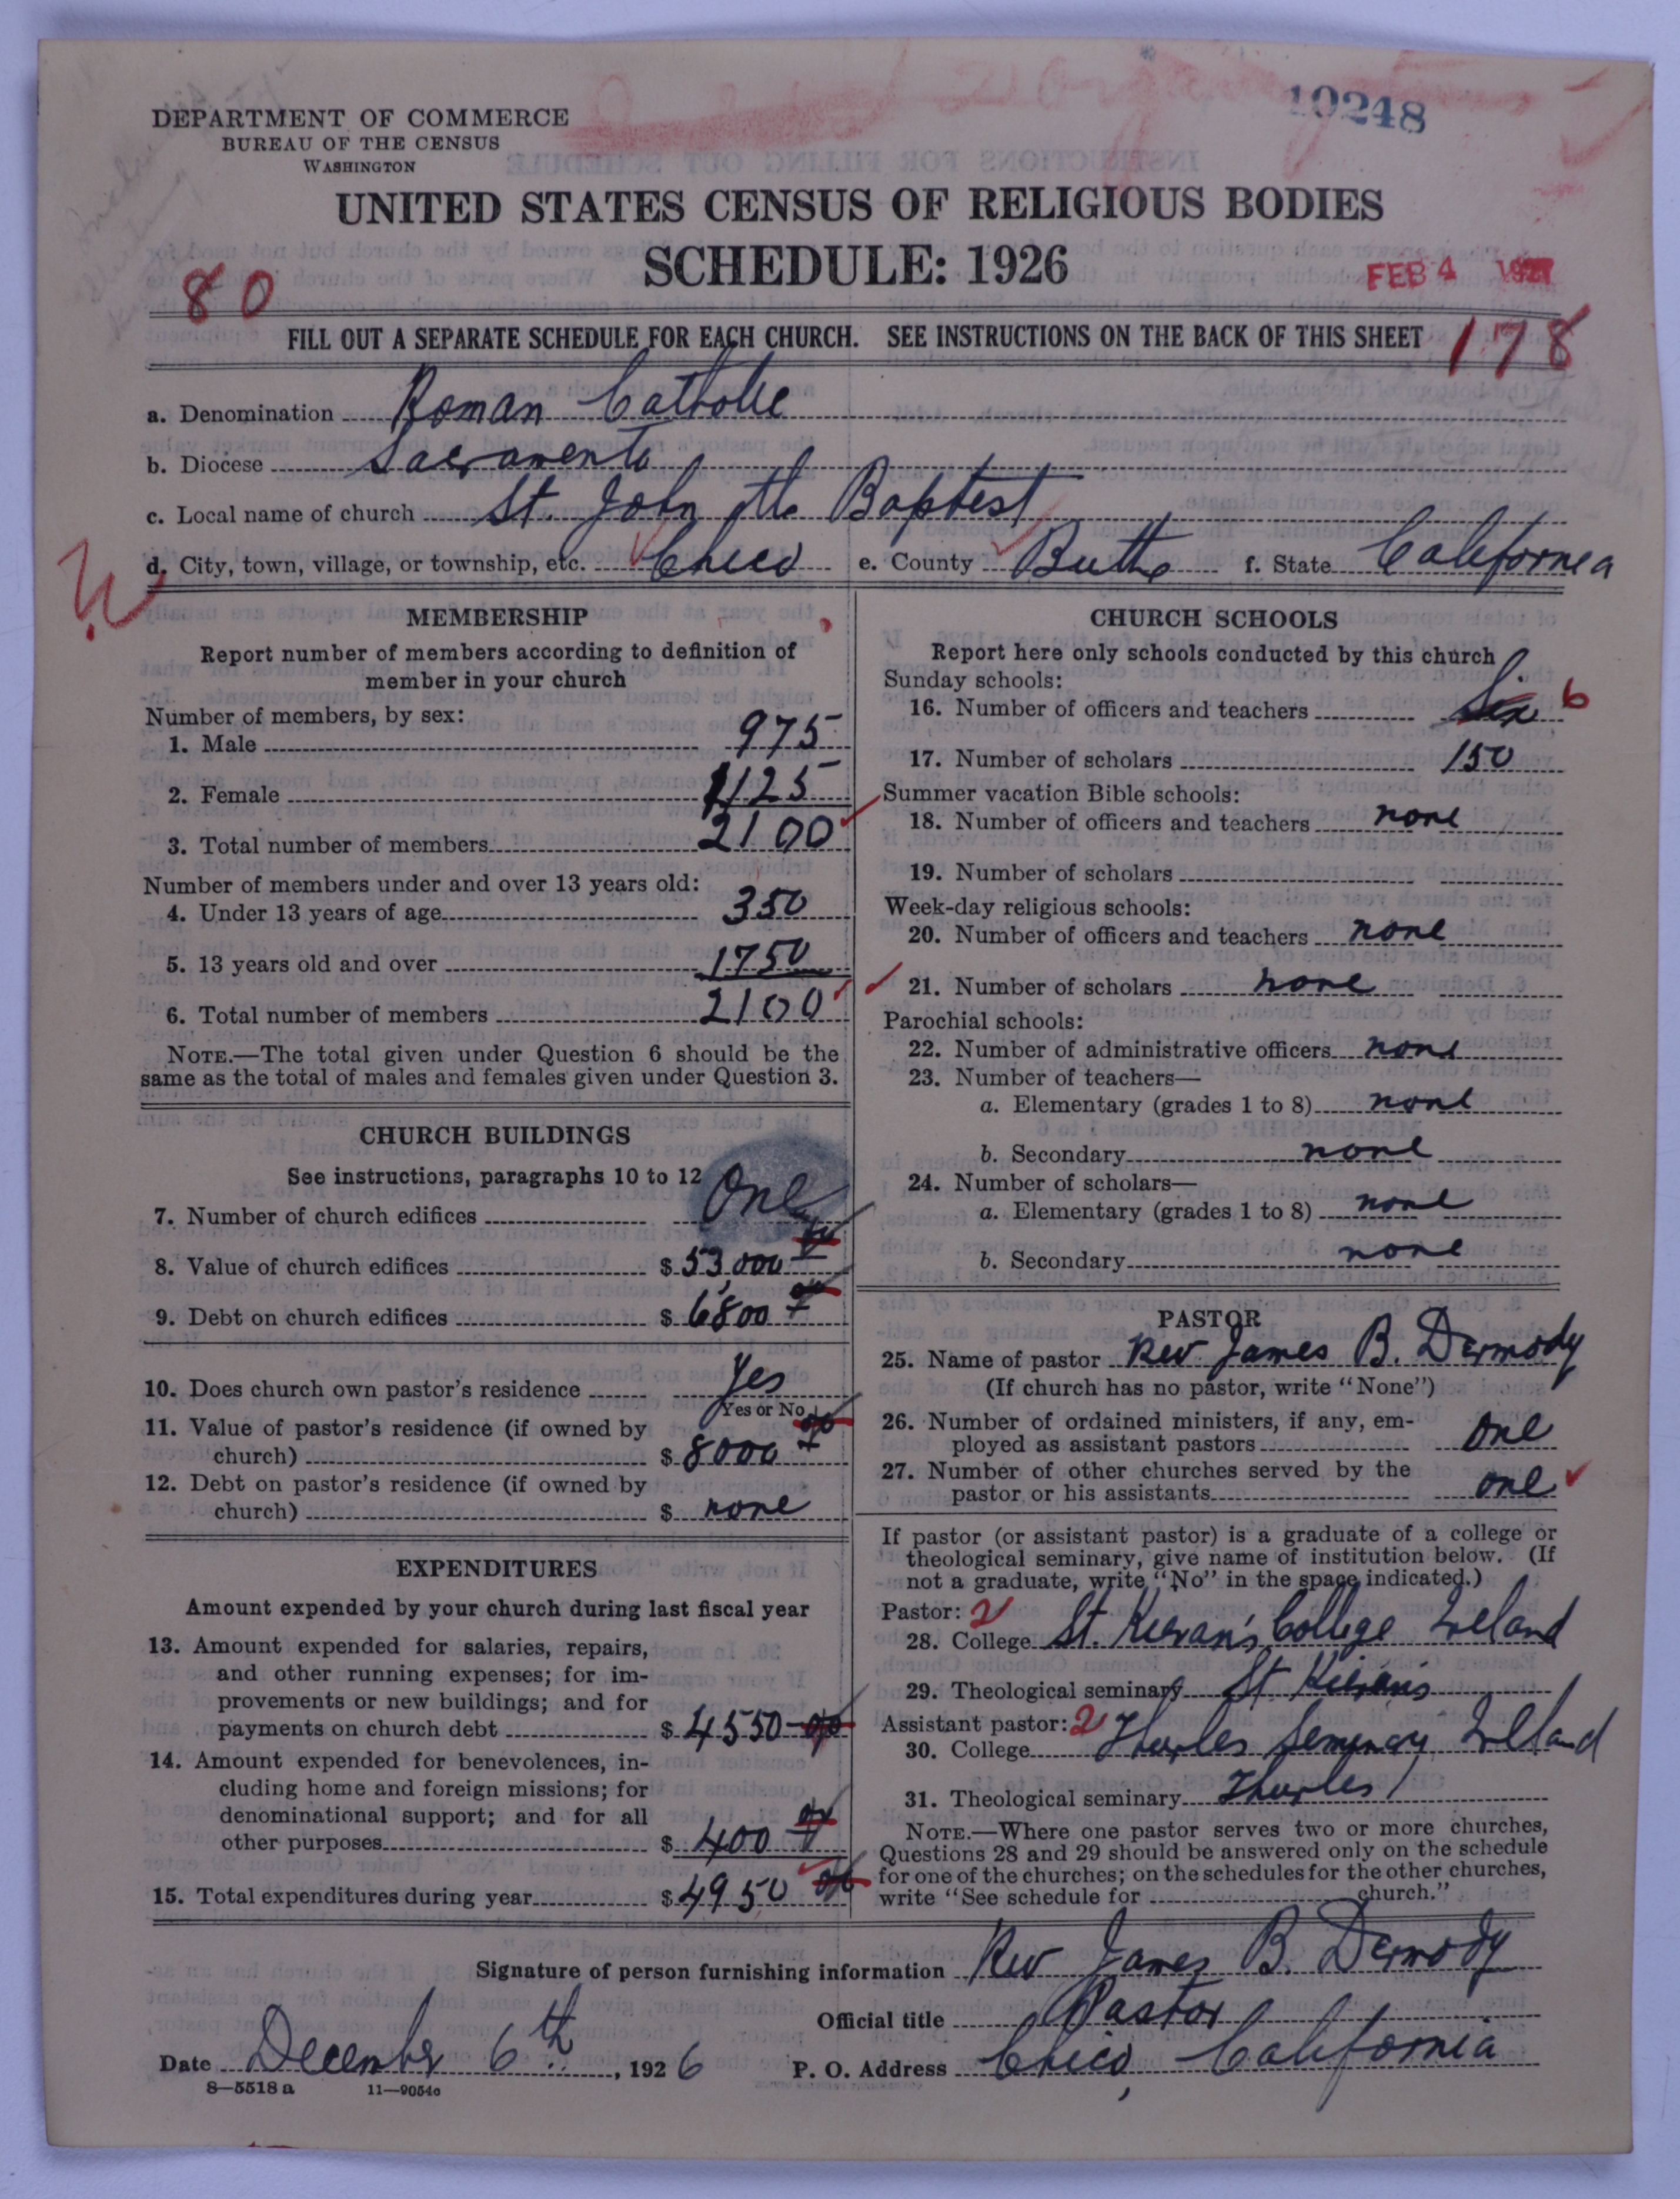 10248
DEPARTMENT OF COMMERCE
BUREAU OF THE CENSUS
WASHINGTON
UNITED STATES CENSUS OF RELIGIOUS BODIES
SCHEDULE: 1926
FEB 4 1927
80
FILL OUT A SEPARATE SCHEDULE FOR EACH CHURCH. SEE INSTRUCTIONS ON THE BACK OF THIS SHEET
178
a. Denomination Roman Catholic
b. Diocese Sacramento
c. Local name of church St. John the Baptist
d. City, town, village, or township, etc. Chico e. County Butte f. State California
MEMBERSHIP
Report number of members according to definition of
member in your church
Number of members, by sex:
1. Male 975
2. Female 1125
3. Total number of members 2100
Number of members under and over 13 years old:
4. Under 13 years of age 350
5. 13 years old and over 1750
6. Total number of members 2100
NOTE.—The total given under Question 6 should be the
same as the total of males and females given under Question 3.
CHURCH BUILDINGS
See instructions, paragraphs 10 to 12
7. Number of church edifices One
8. Value of church edifices $ 53,000 00
9. Debt on church edifices $ 6800 00
10. Does church own pastor's residence Yes
Yes or No
11. Value of pastor's residence (if owned by
church) $ 8000 00
12. Debt on pastor's residence (if owned by
church) $ none
EXPENDITURES
Amount expended by your church during last fiscal year
13. Amount expended for salaries, repairs,
and other running expenses; for im-
provements or new buildings; and for
payments on church debt $ 4550 00
14. Amount expended for benevolences, in-
cluding home and foreign missions; for
denominational support; and for all
other purposes $ 400 00
15. Total expenditures during year $ 4950 00
CHURCH SCHOOLS
Report here only schools conducted by this church
Sunday schools:
16. Number of officers and teachers Six 6
17. Number of scholars 150
Summer vacation Bible schools:
18. Number of officers and teachers none
19. Number of scholars
Week-day religious schools:
20. Number of officers and teachers none
21. Number of scholars none
Parochial schools:
22. Number of administrative officers none
23. Number of teachers—
a. Elementary (grades 1 to 8) none
b. Secondary none
24. Number of scholars—
a. Elementary (grades 1 to 8) none
b. Secondary none
PASTOR
25. Name of pastor Rev James B. Dermody
(If church has no pastor, write "None")
26. Number of ordained ministers, if any, em-
ployed as assistant pastors One
27. Number of other churches served by the
pastor or his assistants one
If pastor (or assistant pastor) is a graduate of a college or
theological seminary, give name of institution below. (If
not a graduate, write "No" in the space indicated.)
Pastor: 2
28. College St. Kieran's College Ireland
29. Theological seminary St Kieran's
Assistant pastor: 2
30. College Thurles Seminary Ireland
31. Theological seminary Thurles
NOTE.—Where one pastor serves two or more churches,
Questions 28 and 29 should be answered only on the schedule
for one of the churches; on the schedules for the other churches,
write "See schedule for church."
Signature of person furnishing information Rev James B. Dermody
Official title Pastor
Date December 6th, 1926 P. O. Address Chico, California
8—5518 a 11—9054a